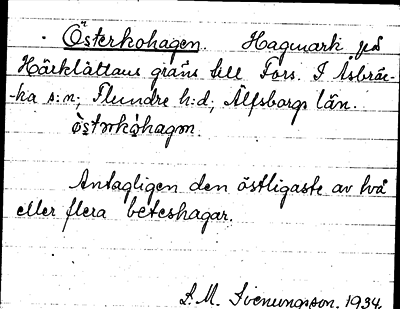 · Österkohagen. Hagmark på
Härklättans gräns till Fors. I Åsbräc-
-ka s:n; Flundre h:d; Älfsborgs län.
Antagligen den östligaste av två
eller flera beteshagar.
S. M. Svenungsson. 1934.